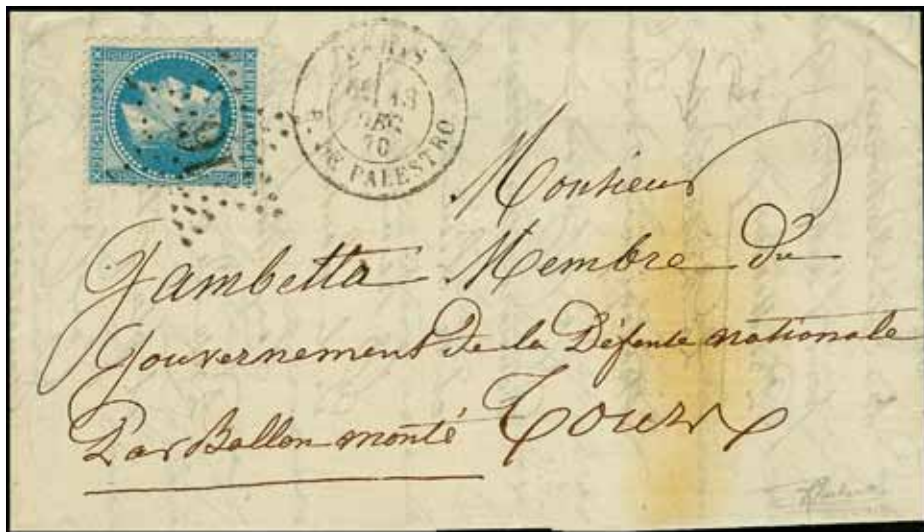 EMPIRE FRANÇAIS
PARIS
18
DEC
70
R. DE PALESTRO
Monsieur
Gambetta Membre du
Gouvernement de la Défense nationale
Par Ballon monté Tours